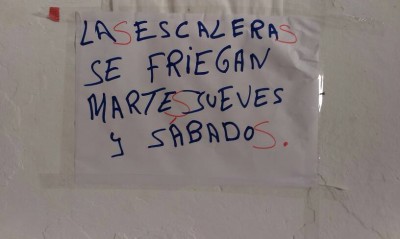 LAS ESCALERAS
SE FRIEGAN
MARTES JUEVES
Y SÁBADOS.